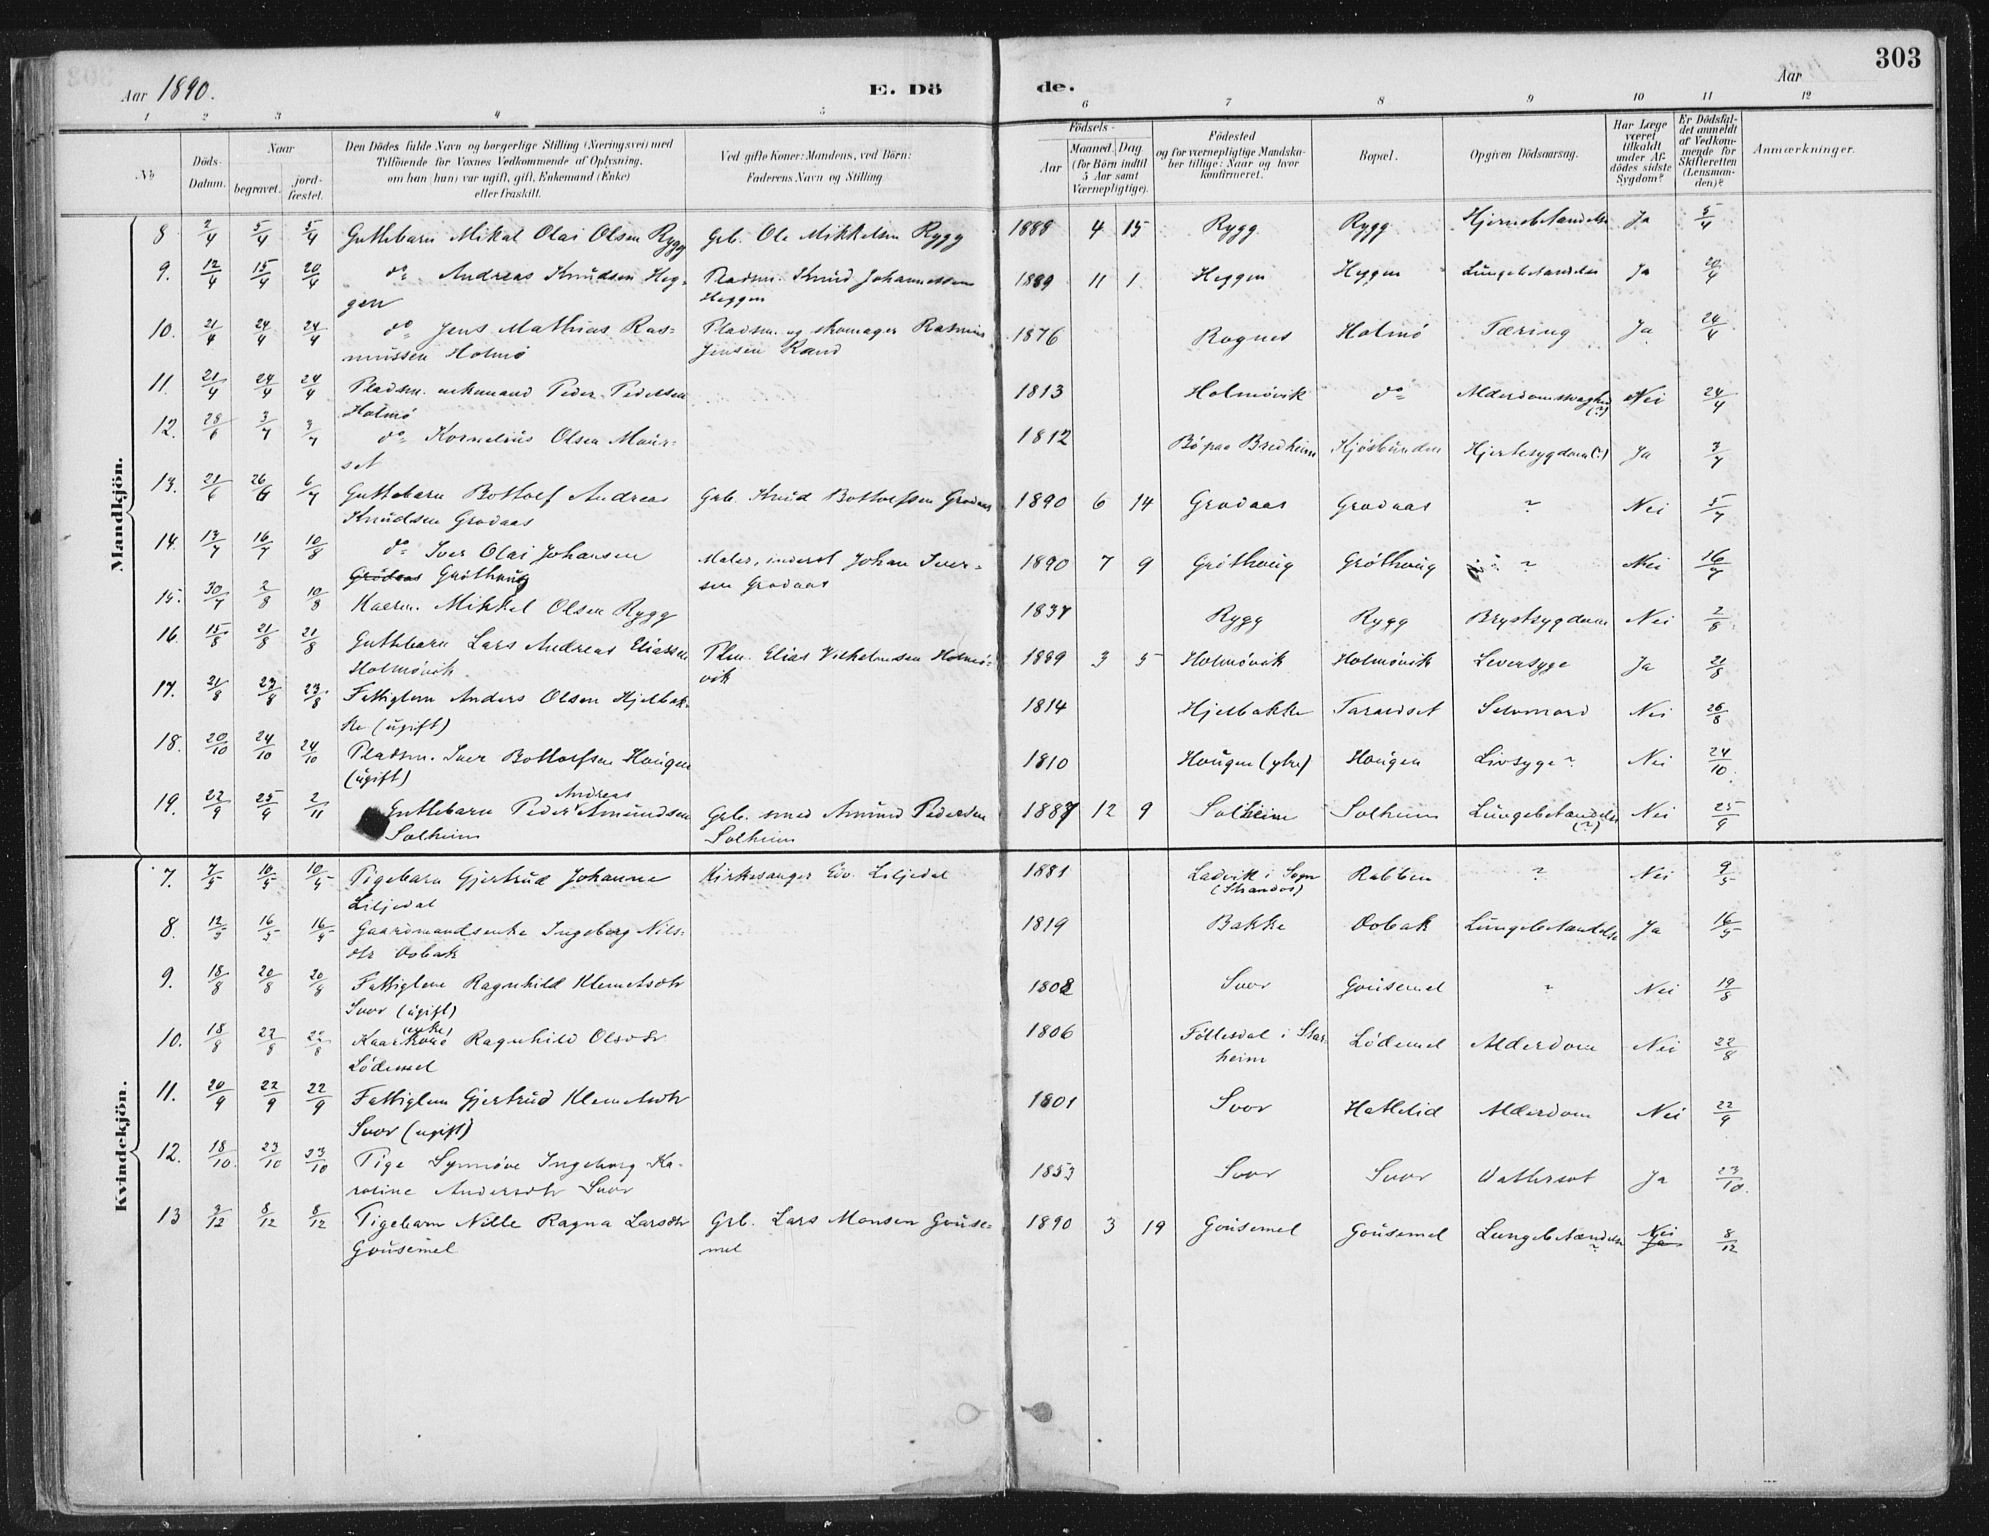 303
Aar 1890.
E. Dö
de.
Aar
1 2 3 4 5 6 7 8 9 10 11 12
No
Döds-
Datum.
Naar
begravet.
jord-
fæstet.
Den Dödes fulde Navn og borgerlige Stilling (Næringsvei) med
Tilföiende for Voxnes Vedkommende af Oplysning,
om han (hun) var ugift, gift, Enkemand (Enke)
eller fraskilt.
Ved gifte Koner: Mandens, ved Börn:
Faderens Navn og Stilling
Födsels-
Aar
Maaned. Dag.
(for Börn indtil
5 Aar samt
Værnepligtige).
Födested
og for værnepligtige Mandska-
ber tillige: Naar og hvor
konfirmeret.
Bopæl.
Opgiven Dödsaarsag.
Har Læge
været
tilkaldt
under Af-
dödes sidste
Sygdom?
Er Dödsfal-
det anmeldt
af Vedkom-
mende for
Skifteretten
(Lensman-
den)?
Anmærkninger.
Mandkjön.
8 2/4 5/4 5/4 Guttebarn Mikal Olai Olsen Rygg Grb. Ole Mikkelsen Rygg 1888 4 15 Rygg Rygg Hjernebetændelse Ja 5/4
9. 12/4 15/4 20/4 do Andreas Knudsen Heg- Pladsm. Knud Johannessen 1889 11 1 Heggen Heggen Lungebetændelse Ja 20/4
gen Heggen
10. 21/4 24/4 24/4 do Jens Mathias Ras- Pladsm. og skomager Rasmus 1876 Rognes Holmö Tæring Ja 24/4
mussen Holmö Jensen Rand
11. 21/4 24/4 24/4 Pladsm. enkemand Peder Pedersen 1813 Holmövik do Alderdomssvaghed Nei 24/4
Holmö (?)
12. 28/6 3/7 3/7 do Kornelius Olsen Maur- 1812 Bö paa Bredheim Kjösbunden Hjertesygdom(?) Ja 3/7
set
13. 21/6 26/6 6/7 Guttebarn Bottolf Andreas Grb. Knud Bottolfsen Grodaas 1890 6 14 Grodaas Grodaas ? Nei 5/7
Knudsen Grodaas
14. 13/7 16/7 10/8 do Iver Olai Johansen Maler, inderst Johan Iver- 1890 7 9 Gröthaug Gröthoug ? Nei 16/7
Grodaas Gröthaug sen Grodaas
15. 30/7 2/8 10/8 Kaarm. Mikkel Olsen Rygg 1837 Rygg Rygg Brystsygdom Nei 2/8
16. 15/8 21/8 21/8 Guttebarn Lars Andreas Eliassen Plm. Elias Vilhelmsen Holmö- 1889 3 5 Holmövik Holmövik Leversyge Ja 21/8
Holmövik vik
17. 21/8 23/8 23/8 Fattiglem Anders Olsen Hjelbak- 1814 Hjelbakke Taraldset Selvmord Nei 26/8
ke (ugift)
18. 20/10 24/10 24/10 Pladsm. Iver Bottolfsen Hougen 1810 Hougen (ytre) Hougen Livsyge? Nei 24/10
(ugift)
19. 22/9 25/9 2/11 Guttebarn Peder Andreas Amundsen Grb. smed Amund Pedersen 1887 12 9 Solheim Solheim Lungebetændelse Nei 25/9
Solheim Solheim (?)
Kvindekjön.
7. 7/5 10/5 10/5 Pigebarn Gjertrud Johanne Kirkesanger Edv. Liljedal 1881 Ladvik i Sogn Rabben ? Nei 9/5
Liljedal
8. 12/5 16/5 16/5 Gaardmandsenke Ingeborg Nils- 1819 Bakke Dobak Lungebetændelse Ja 16/5
dtr Dobak
9. 18/8 20/8 20/8 Fattiglem Ragnhild Klemetsdtr 1802 Svor Gousemel ? Nei 19/8
Svor (ugift)
10. 18/8 22/8 22/8 Kaarkone (enke) Ragnhild Olsdtr 1806 Föllesdal i Star- Lödemel Alderdom Nei 22/8
Lödemel heim
11. 20/9 22/9 22/9 Fattiglem Gjertrud Klemetsdtr 1801 Svor Hatlelid Alderdom Nei 22/9
Svor (ugift)
12. 18/10 23/10 23/10 Pige Synnöve Ingeborg Ka- 1853 Svor Svor Vattersot Ja 23/10
roline Andersdtr Svor
13 2/12 8/12 8/12 Pigebarn Nille Ragna Larsdtr Grb. Lars Monsen Gouse- 1890 3 19 Gousemel Gousemel Lungebetændelse Nei 8/12
Gousemel mel ? Ja